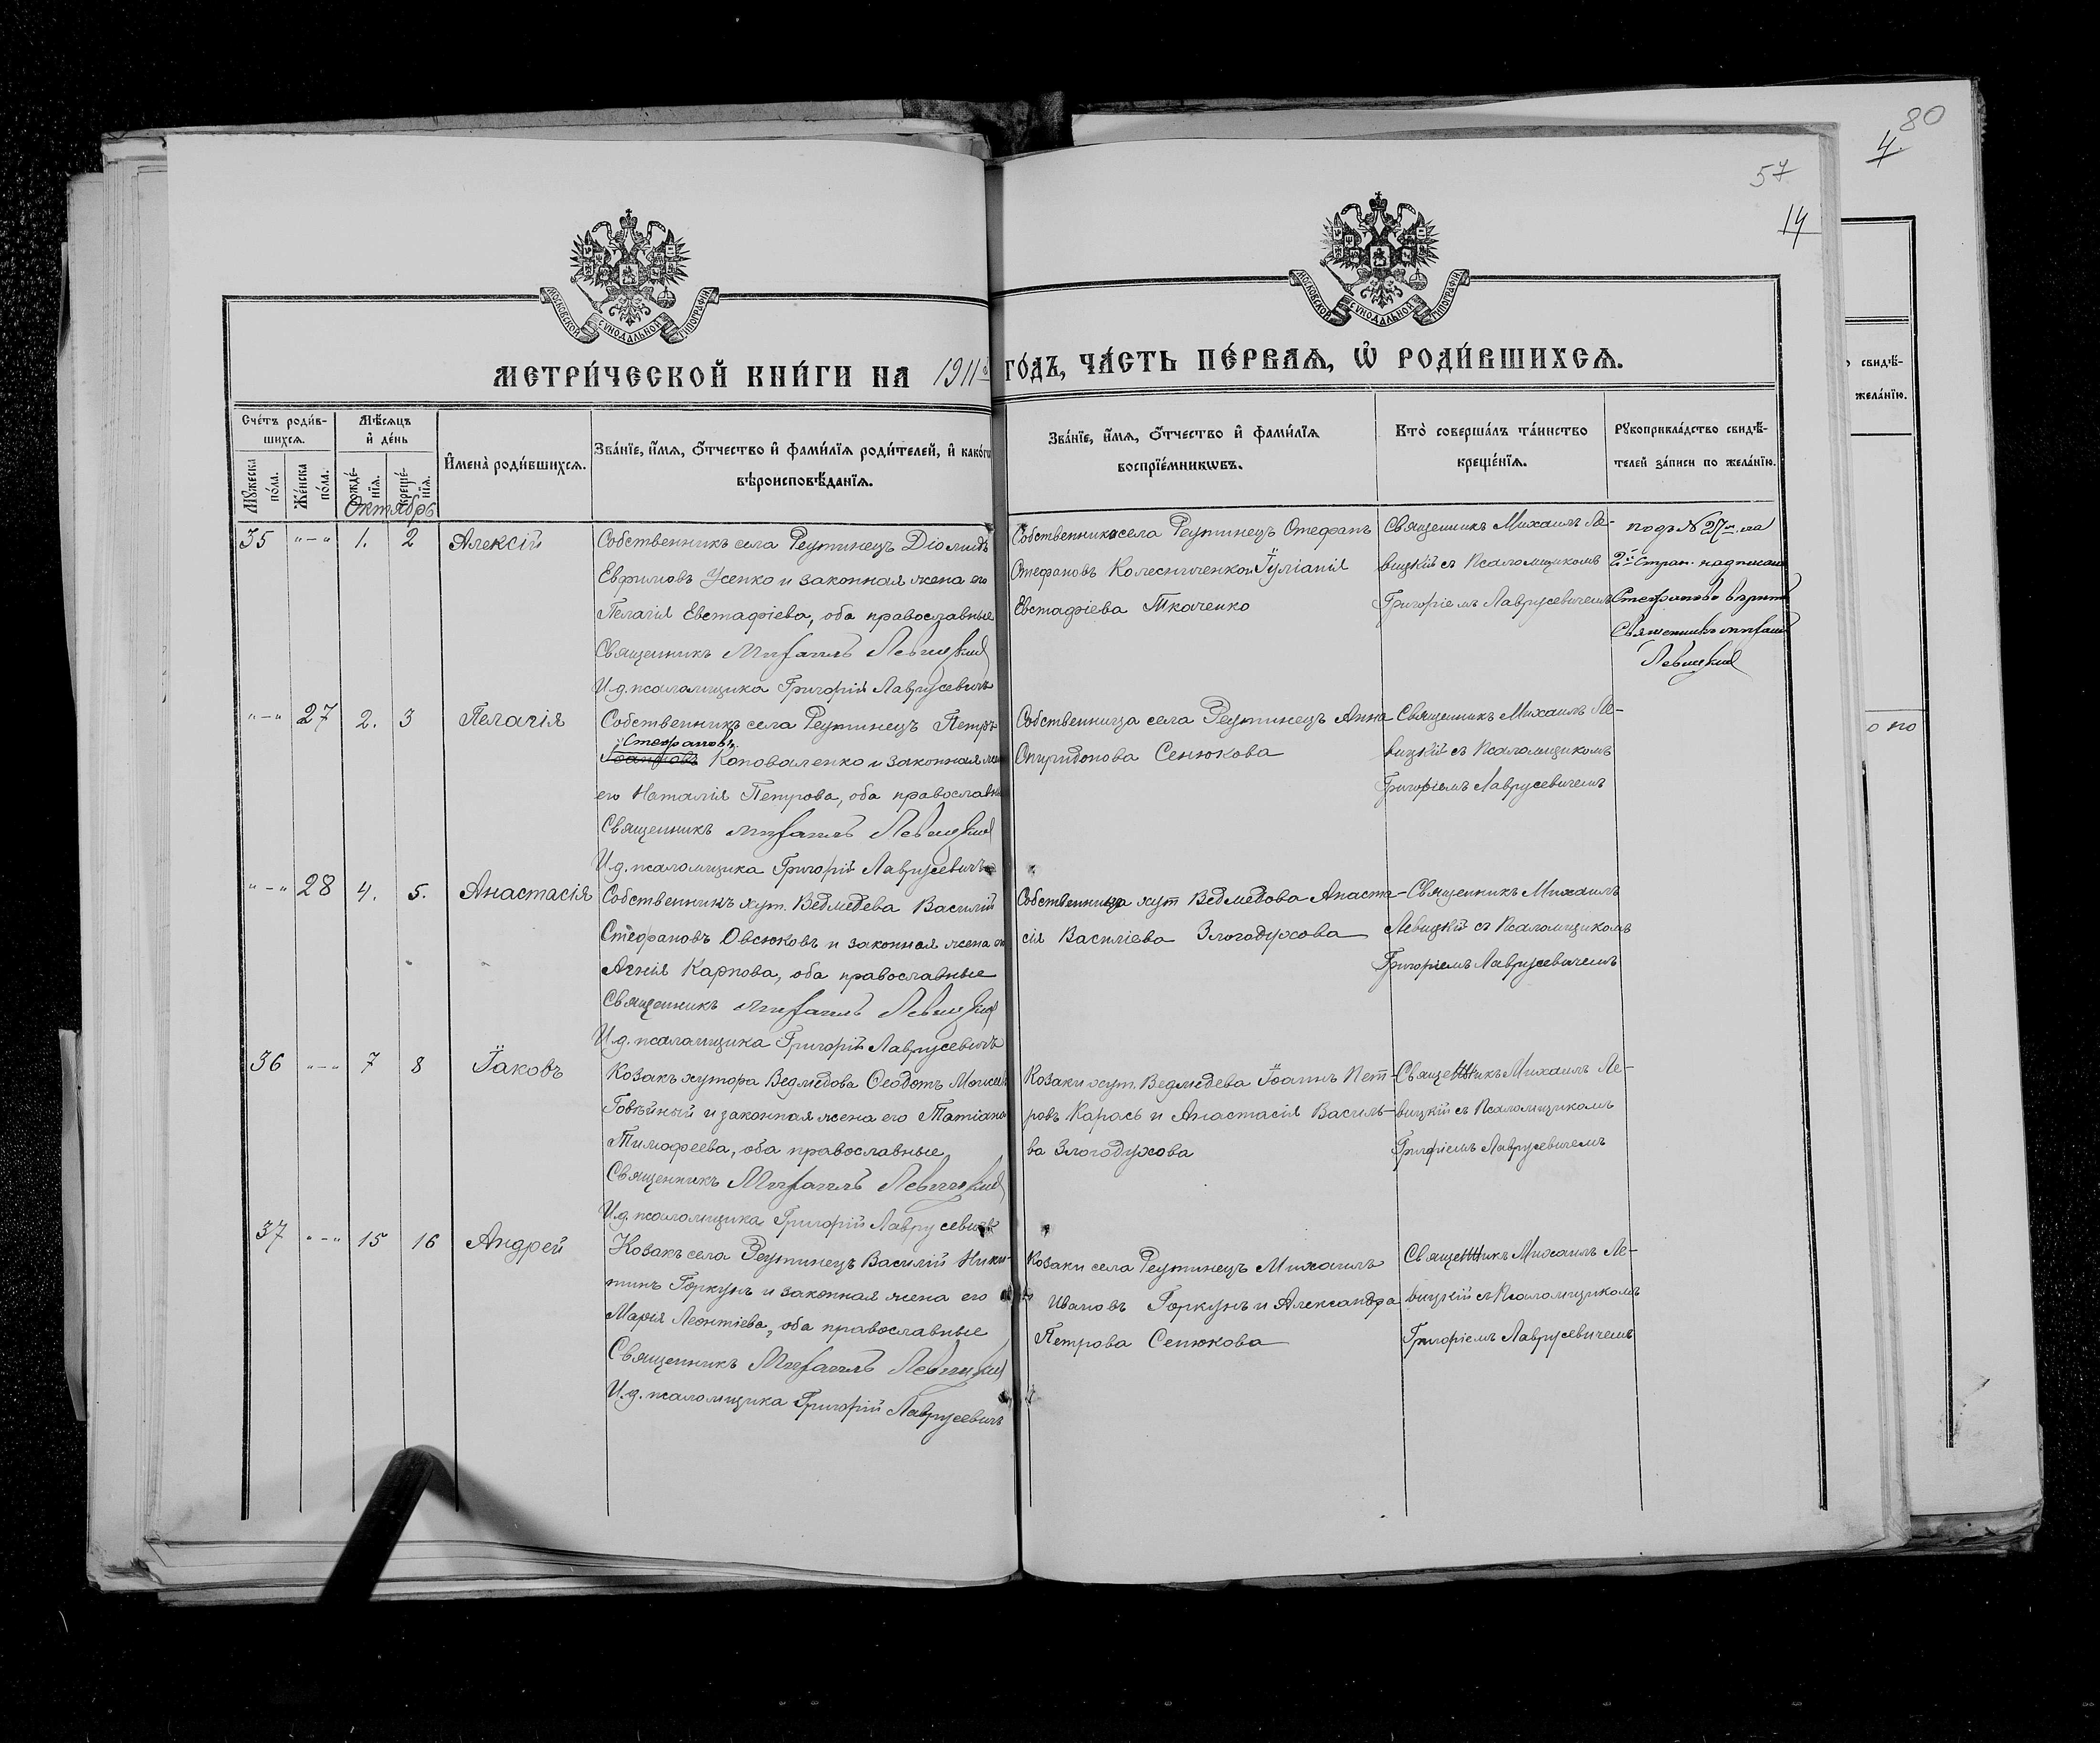 80
4.
57
14
МОСКОВСКОЙ СѴНОДАЛЬНОЙ ТИПОГРАФІИ
МОСКОВСКОЙ СѴНОДАЛЬНОЙ ТИПОГРАФІИ
МЕТРИ́ЧЕСКОЙ КНИ́ГИ НА 1911й ГО́ДЪ, ЧА́СТЬ ПЕ́РВАѦ, Ѡ҆ РОДИ́ВШИХСѦ.
Сче́тъ роди́в-
шихсѧ.
Мꙋ́жеска по́ла.
Же́нска по́ла.
Мѣ́сѧцъ и҆ де́нь
рожде́-нїѧ.
креще́-нїѧ.
И҆мена̀ роди́вшихсѧ.
Зва́нїе, и҆́мѧ, ѻ҆́тчество и҆ фами́лїѧ роди́телей, и҆ како́гѡ
вѣроисповѣ́данїѧ.
Зва́нїе, и҆́мѧ, ѻ҆́тчество и҆ фами́лїѧ
воспрїе́мникѡвъ.
Кто̀ соверша́лъ та́инство
креще́нїѧ.
Рꙋкоприкла́дство свидѣ́-
телей за́писи по жела́нїю.
свидѣ́-
жела́нїю.
Октябрь
35 "–" 1. 2 Алексій
Собственникъ села Реутинецъ Діомидъ
Евфимовъ Усенко и законная жена его
Пелагія Евстафіева, оба православные
Священникъ Михаилъ Левицкій
И.д. псаломщика Григорій Лаврусевичъ
Собственники села Реутинецъ Стефанъ
Стефановъ Колесниченко и Іуліанія
Евстафіева Ткаченко
Священникъ Михаилъ Ле-
вицкій съ Псаломщикомъ
Григоріемъ Лаврусевичемъ
подъ № 27м на
2й стран. надписано
Стефановъ вѣрить
Священникъ Михаилъ
Левицкій
"–" 27 2. 3 Пелагія
Собственникъ села Реутинецъ Петръ
Стефановъ
Іоанновъ Коноваленко и законная жена
его Наталія Петрова, оба православные
Священникъ Михаилъ Левицкій
И.д. псаломщика Григорій Лаврусевичъ
Собственница села Реутинецъ Анна
Спиридонова Сенюкова
Священникъ Михаилъ Ле-
вицкій съ Псаломщикомъ
Григоріемъ Лаврусевичемъ
"–" 28 4. 5. Анастасія
Собственникъ хут. Ведмедева Василій
Стефановъ Овсюковъ и законная жена его
Агнія Карпова, оба православные
Священникъ Михаилъ Левицкій
И.д. псаломщика Григорій Лаврусевичъ
Собственница хут Ведмедова Анаста-
сія Василіева Злогодухова
Священникъ Михаилъ
Левицкій съ Псаломщикомъ
Григоріемъ Лаврусевичемъ
36 "–" 7 8 Іаковъ
Козакъ хутора Ведмедова Ѳеодотъ Моисеев
Говѣйный и законная жена его Татіана
Тимофеева, оба православные
Священникъ Михаилъ Левицкій
И.д. псаломщика Григорій Лаврусевичъ
Козаки хут. Ведмедева Іоаннъ Пет-
ровъ Карась и Анастасія Василь-
ва Злогодухова
Священникъ Михаилъ Ле-
вицкій съ Псаломщикомъ
Григоріемъ Лаврусевичемъ
37 "–" 15 16 Андрей
Козакъ села Реутинецъ Василій Ники-
тинъ Горкунъ и законная жена его
Марія Леонтіева, оба православные
Священникъ Михаилъ Левицкій
И.д. псаломщика Григорій Лаврусевичъ
Козаки села Реутинецъ Михаилъ
Ивановъ Горкунъ и Александра
Петрова Сенюкова
Священникъ Михаилъ Ле-
вицкій съ Псаломщикомъ
Григоріемъ Лаврусевичемъ
о по